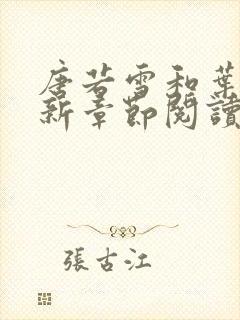 唐若雪和葉
新章節閱讀
張古江